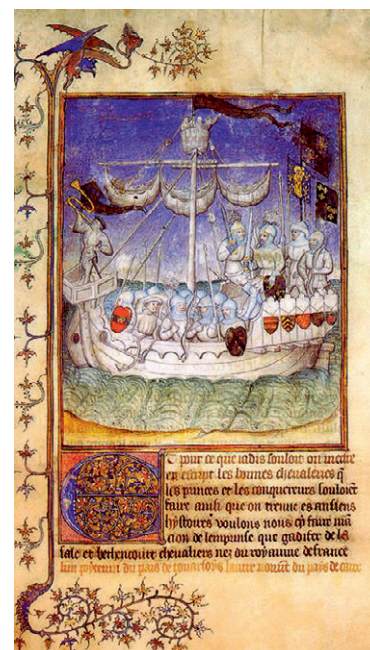 Et pour ce que iadis souloit on mectre
en escript les bonnes cheualeries q̃
les princes et les conquereurs souloient
faire ainsi que on treuue es ansiens
hystoires voulons nous cy faire man
cion de lemprinse que gadifer de la
sale et bethencourt cheualiers nez du royaume de france
lun poyteuin du pais de touarsoys lautre normãt du pays de caux